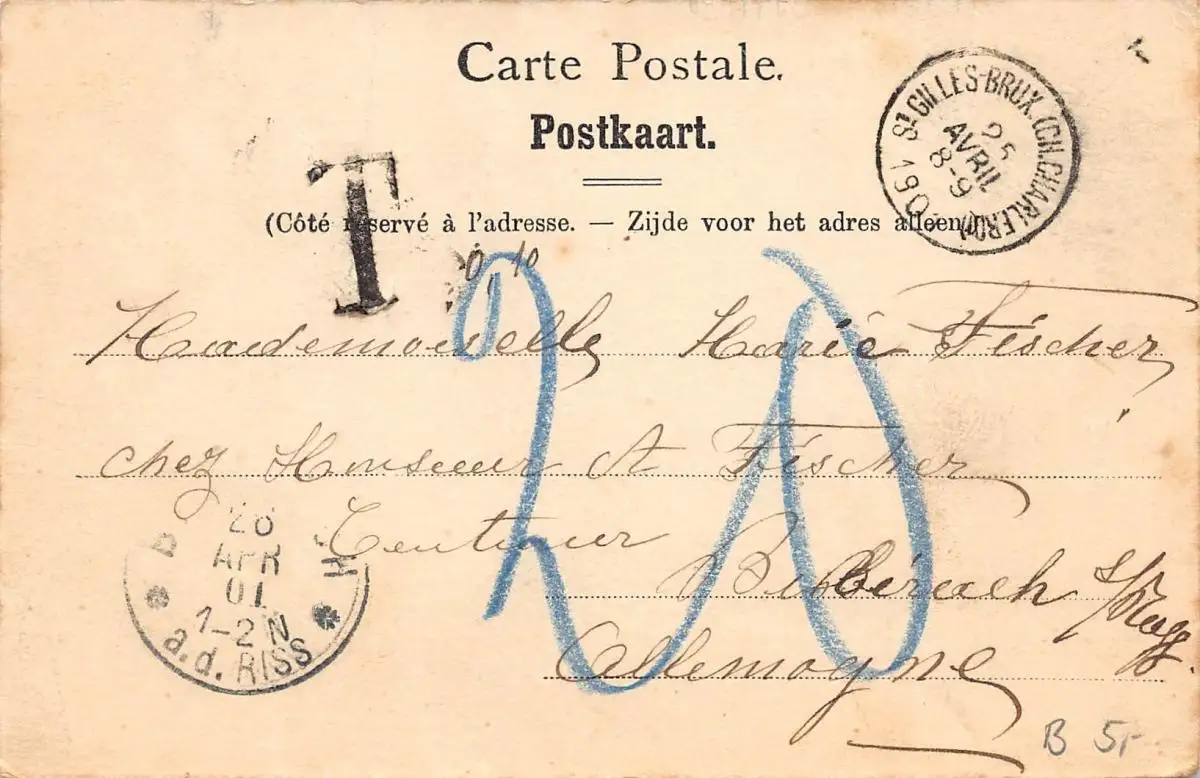 Carte Postale.
Postkaart.
(Côté réservé à l'adresse. — Zijde voor het adres alleen.)
ST GILLES-BRUX. (CH. CHARLEROI)
25
AVRIL
8-9
1901
T
0,10
20
Mademoiselle Marie Fischer
chez Monsieur A Fischer
Biberach
Allemagne
26
APR
01
1-2 N
a.d. RISS
B 5,-